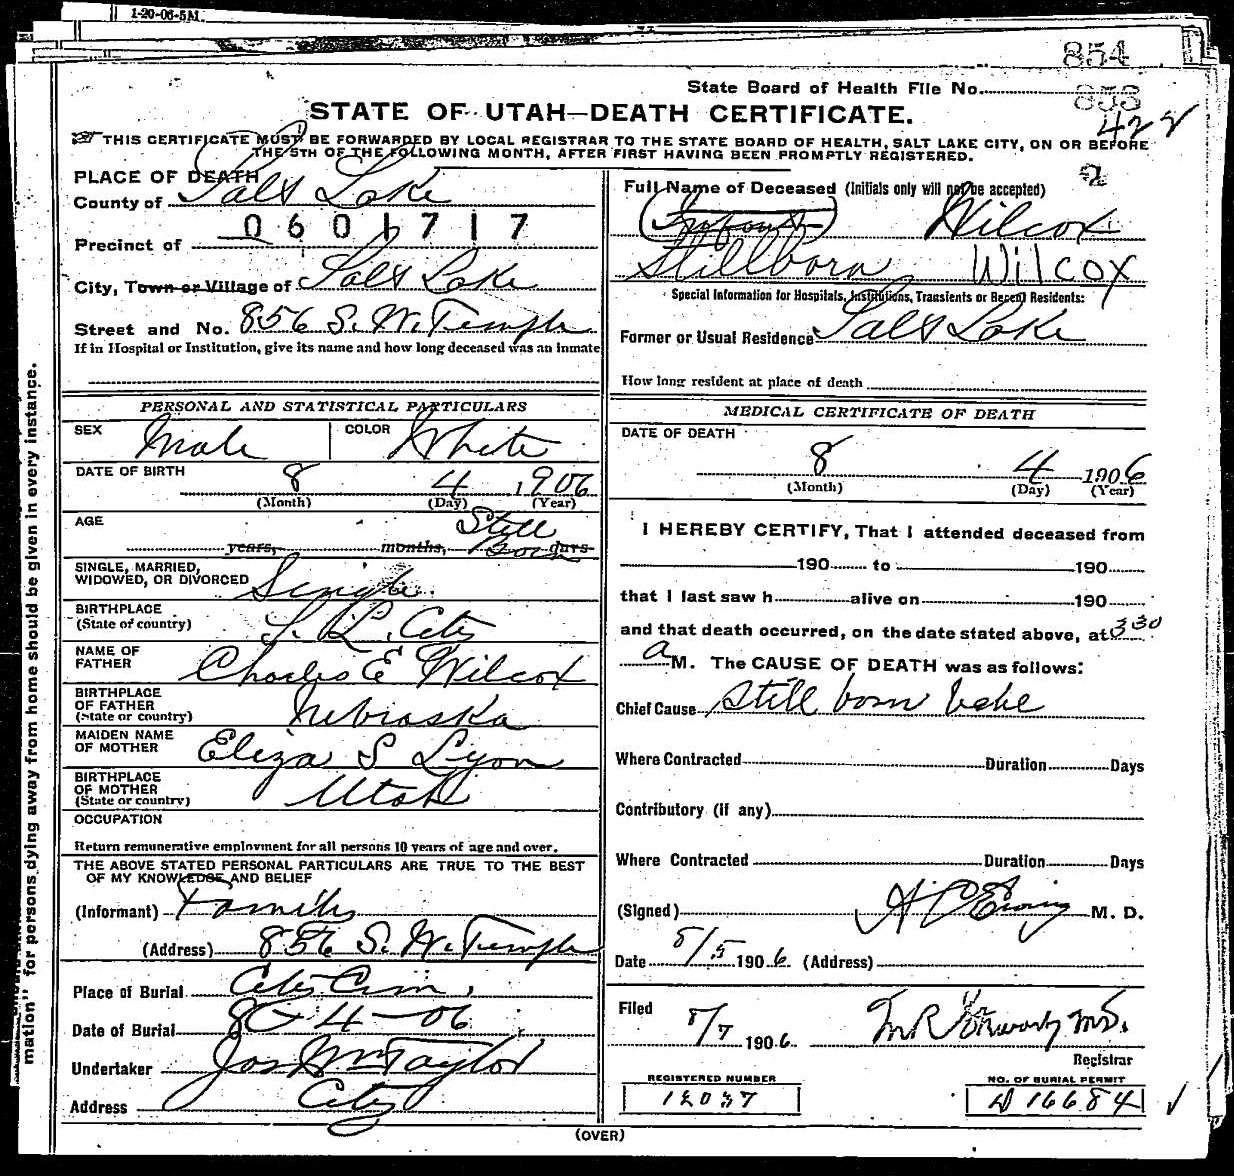 1-20-06-5M.
854
State Board of Health File No. 853
422
STATE OF UTAH—DEATH CERTIFICATE.
THIS CERTIFICATE MUST BE FORWARDED BY LOCAL REGISTRAR TO THE STATE BOARD OF HEALTH, SALT LAKE CITY, ON OR BEFORE
THE 5TH OF THE FOLLOWING MONTH, AFTER FIRST HAVING BEEN PROMPTLY REGISTERED.
2
PLACE OF DEATH
County of Salt Lake
0601717
Precinct of
City, Town or Village of Salt Lake
Street and No. 856 S. W. Temple
If in Hospital or Institution, give its name and how long deceased was an inmate
PERSONAL AND STATISTICAL PARTICULARS
SEX Male COLOR White
DATE OF BIRTH 8 4 1906
(Month) (Day) (Year)
AGE Still
years, months, Born days
SINGLE, MARRIED,
WIDOWED, OR DIVORCED Single
BIRTHPLACE
(State or country) S. L. City
NAME OF
FATHER Charles E Wilcox
BIRTHPLACE
OF FATHER
(State or country) Nebraska
MAIDEN NAME
OF MOTHER Eliza S Lyon
BIRTHPLACE
OF MOTHER
(State or country) Utah
OCCUPATION
Return remunerative employment for all persons 10 years of age and over.
THE ABOVE STATED PERSONAL PARTICULARS ARE TRUE TO THE BEST
OF MY KNOWLEDGE AND BELIEF
(Informant) Family
(Address) 856 S. W. Temple
Place of Burial City Cem,
Date of Burial 8-4-06
Undertaker Jos Wm Taylor
Address City
Full Name of Deceased (Initials only will not be accepted)
Infant Wilcox
Stillborn Wilcox
Special Information for Hospitals, Institutions, Transients or Recent Residents:
Former or Usual Residence Salt Lake
How long resident at place of death
MEDICAL CERTIFICATE OF DEATH
DATE OF DEATH
8 4 1906
(Month) (Day) (Year)
I HEREBY CERTIFY, That I attended deceased from
190 to 190
that I last saw h alive on 190
and that death occurred, on the date stated above, at 3 30
a M. The CAUSE OF DEATH was as follows:
Chief Cause Still born
Where Contracted Duration Days
Contributory (if any)
Where Contracted Duration Days
(Signed) Ewing M. D.
Date 8/5 1906 (Address)
Filed 8/7 1906 M.D.
Registrar
REGISTERED NUMBER
12037
NO. OF BURIAL PERMIT
D 16684
(OVER)
mation" for persons dying away from home should be given in every instance.